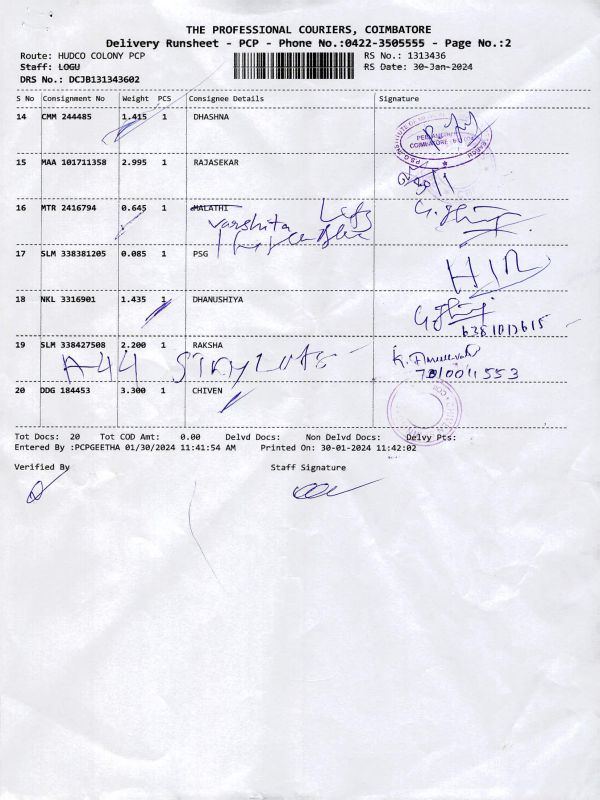 THE PROFESSIONAL COURIERS, COIMBATORE
Delivery Runsheet - PCP - Phone No.:0422-3505555 - Page No.:2
Route: HUDCO COLONY PCP
RS No.: 1313436
Staff: LOGU
RS Date: 30-Jan-2024
DRS No.: DCJB131343602
S No Consignment No Weight PCS Consignee Details Signature
14 CMM 244485 1.415 1 DHASHNA
COIMBATORE
15 MAA 101711358 2.995 1 RAJASEKAR
16 MTR 2416794 0.645 1 MALATHI
Varshita
17 SLM 338381205 0.085 1 PSG
18 NKL 3316901 1.435 1 DHANUSHIYA
19 SLM 338427508 2.200 1 RAKSHA
A44
20 DDG 184453 3.300 1 CHIVEN
Tot Docs: 20 Tot COD Amt: 0.00 Delvd Docs: Non Delvd Docs: Delvy Pts:
Entered By :PCPGEETHA 01/30/2024 11:41:54 AM Printed On: 30-01-2024 11:42:02
Verified By Staff Signature